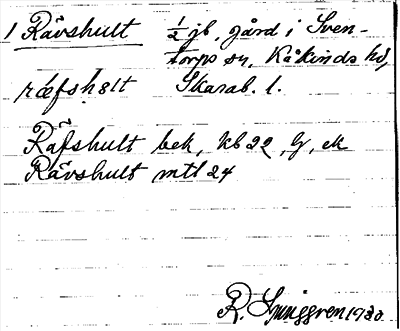 1 Rävshult ½ jb, gård i Sven-
torps sn, Kåkinds hd,
ræfshlt Skarab. l.
Räfshult bek, kb 22, G, ek
Rävshult mtl 24
R. Ljunggren 1930